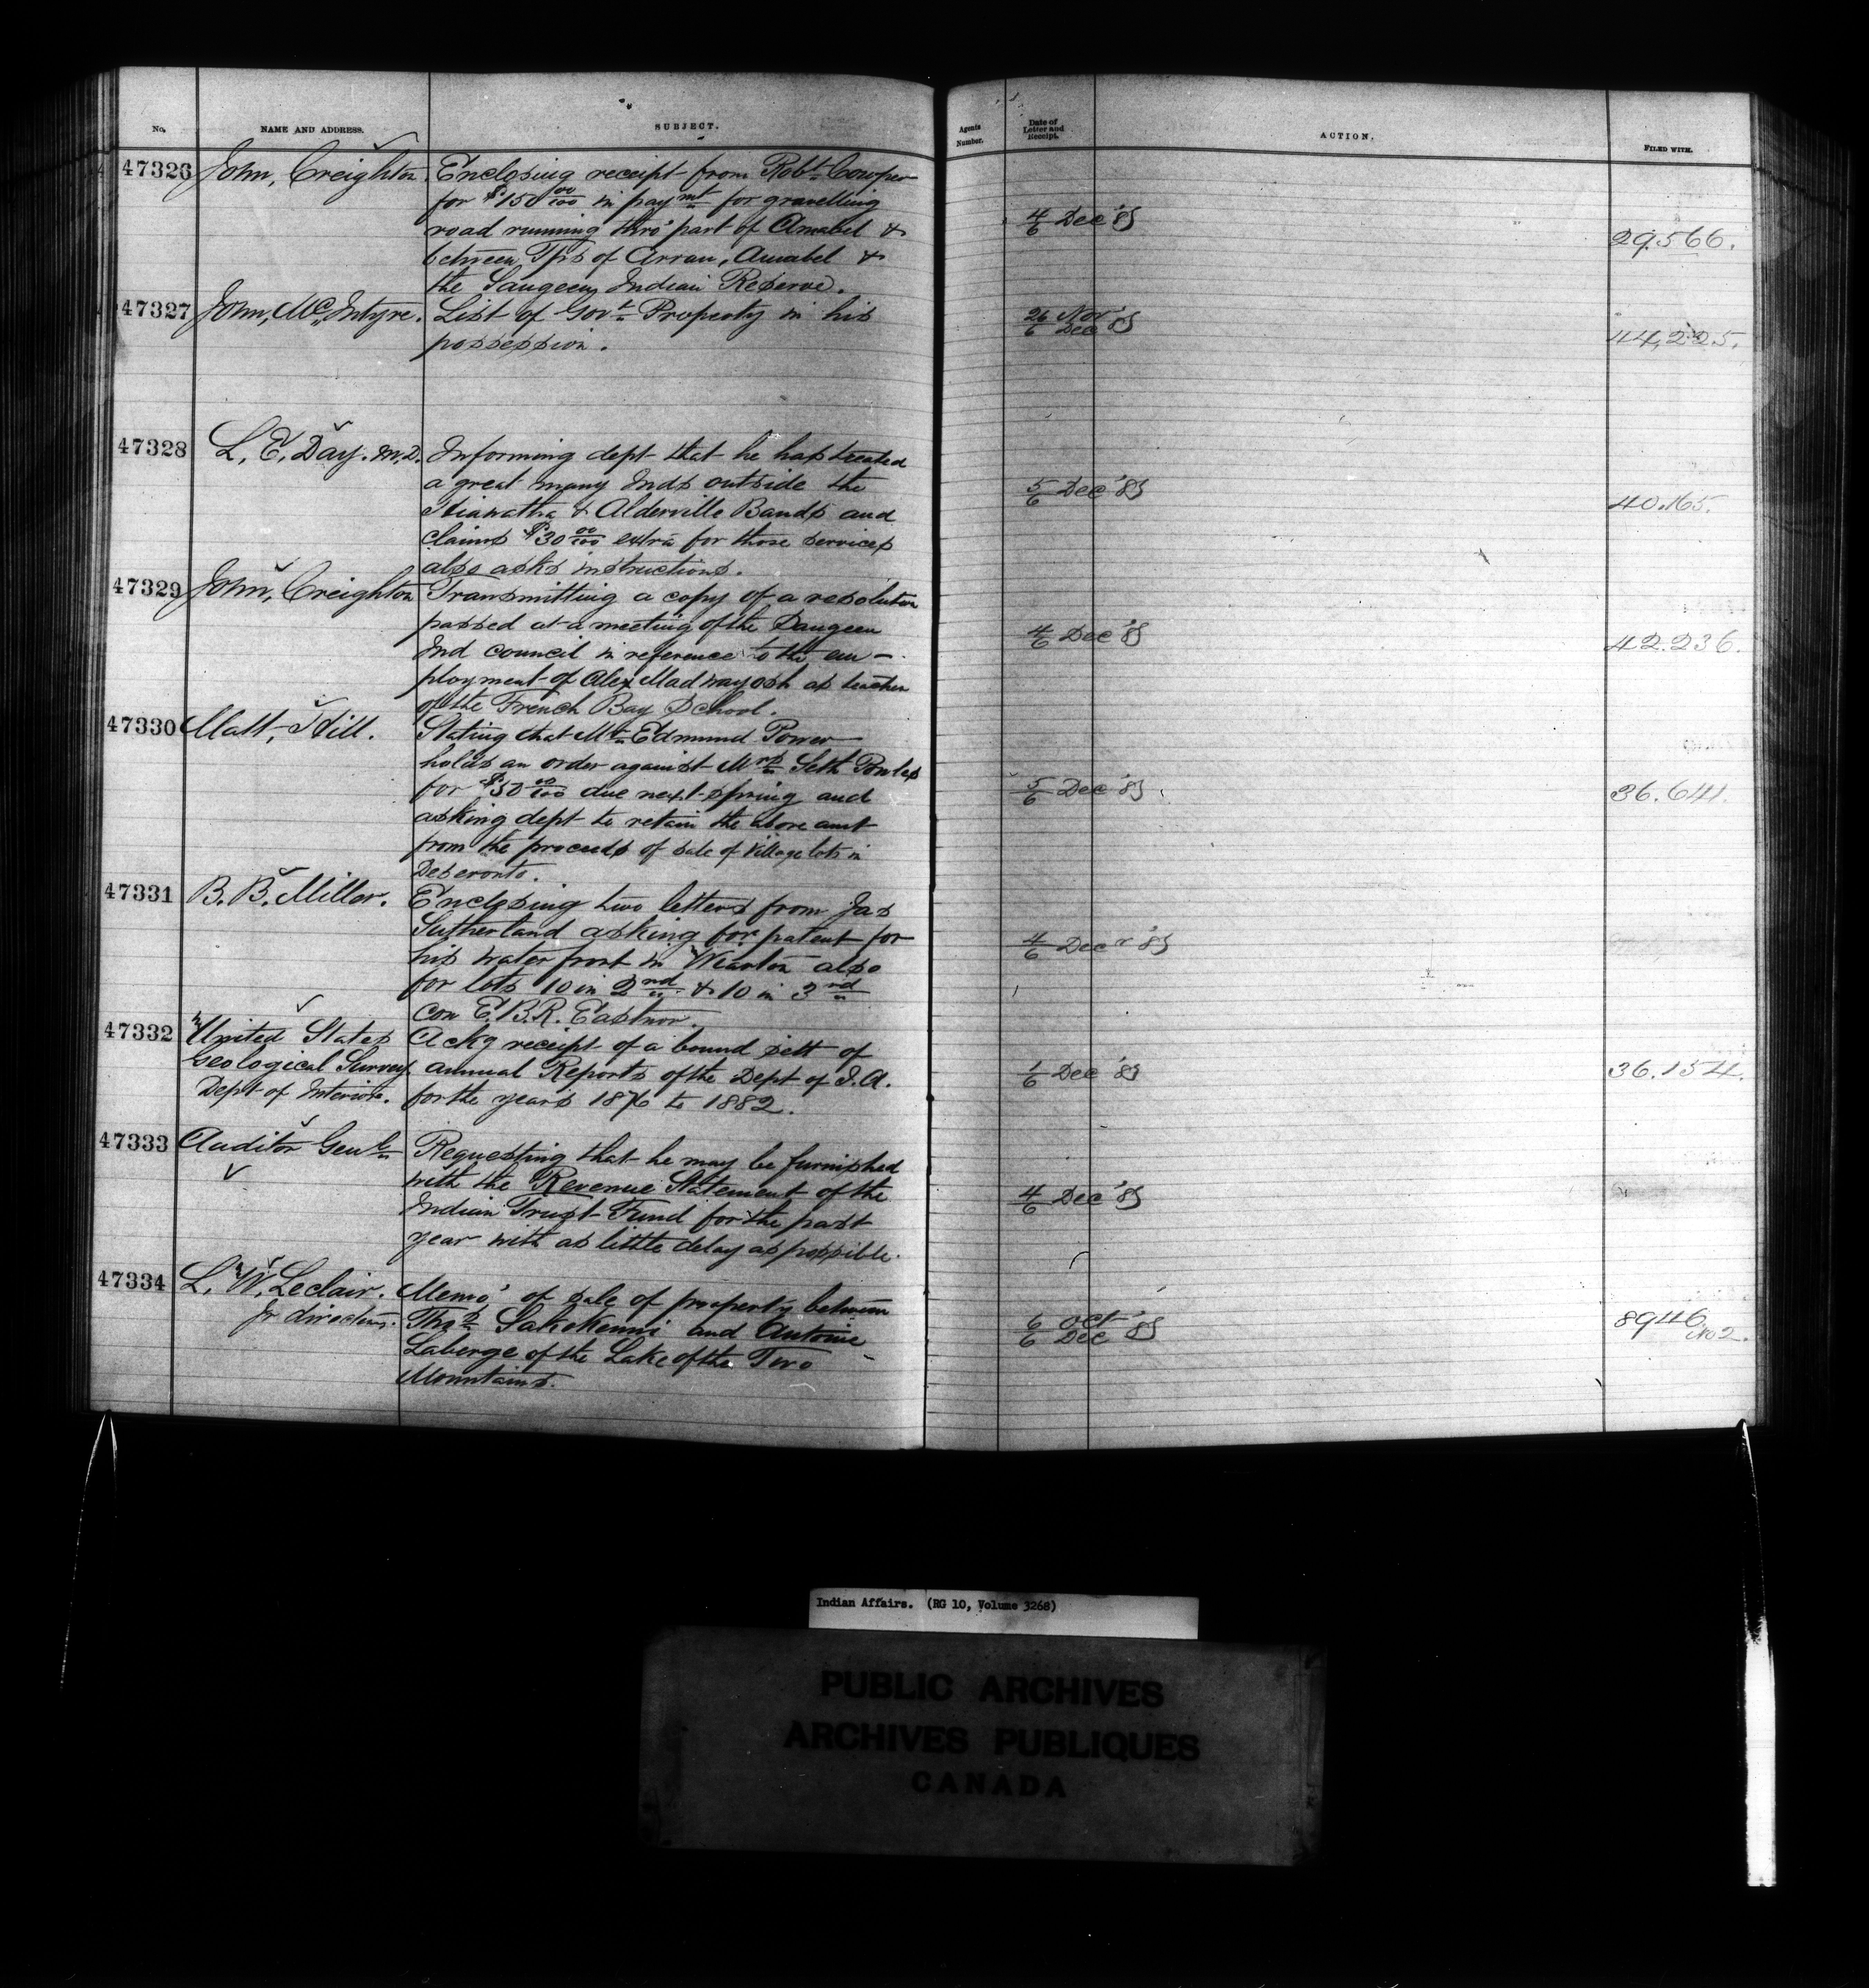 No. NAME AND ADDRESS. SUBJECT. Agents Number. Date of Letter and Receipt. ACTION. FILED WITH.
47326 John, Creighton. Enclosing receipt from Robt Cowper
for $150 00/100 in paymt for gravelling
road running thro' part of Amabel &
between Tps of Arran, Amabel &
the Saugeen Indian Reserve.
4/6 Dec '85
29.566.
47327 John, McIntyre. List of Govt Property in his
possession.
26 Nov/6 Dec '85
44,225.
47328 L. E. Day. M.D. Informing dept that he has treated
a great many Inds outside the
Hiawatha & Alderville Bands and
claims $30 00/100 extra for those services
also asks instructions.
5/6 Dec '85
40.165.
47329 John, Creighton Transmitting a copy of a resolution
passed at a meeting of the Saugeen
Ind council in reference to the em-
ployment of Alex Madwayosh as teacher
of the French Bay School.
4/6 Dec '85
42.236.
47330 Matt, Hill. Stating that Mr Edmund Power
holds an order against Mrs Seth Powles
for $50 00/100 due next spring and
asking dept to retain the above amt
from the proceeds of sale of Village lots in
Deseronto.
5/6 Dec '85
36.641.
47331 B. B. Miller. Enclosing two letters from Jas
Sutherland asking for patent for
his water front in Wiarton also
for lots 10 in 2nd & 10 in 3rd
con E.B.R. Eastnor.
4/6 Decr '85
47332 United States Ackg receipt of a bound sett of
Geological Survey annual Reports of the Dept of I.A.
Dept of Interior. for the years 1876 to 1882.
1/6 Dec '85
36.154.
47333 Auditor Genl Requesting that he may be furnished
with the Revenue Statement of the
Indian Trust Fund for the past
year with as little delay as possible.
4/6 Dec '85
47334 L. W. Leclair. Memo' of sale of property between
Thos Sakokenni and Antoine
Laberge of the Lake of the Two
Mountains.
6 Oct/6 Dec '85
8946 No 2.
Indian Affairs. (RG 10, Volume 3268)
PUBLIC ARCHIVES
ARCHIVES PUBLIQUES
CANADA